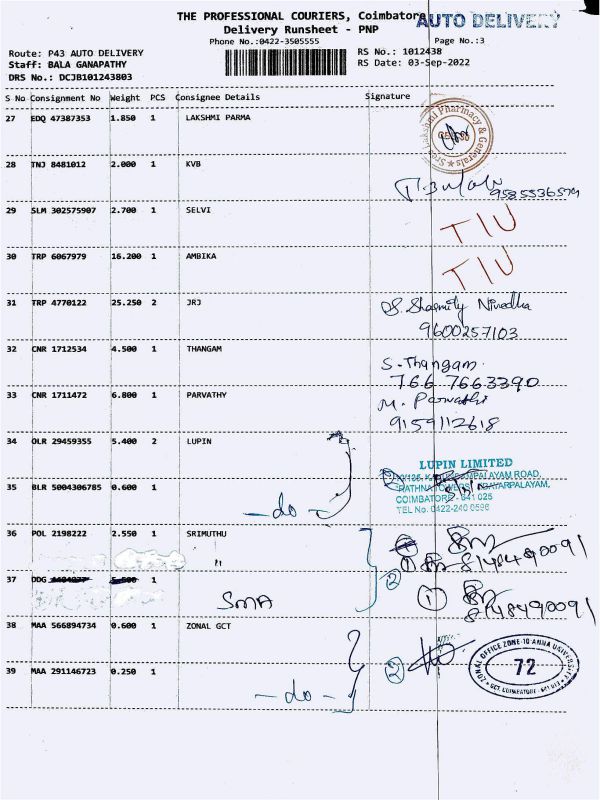 THE PROFESSIONAL COURIERS, Coimbatore
AUTO DELIVERY
Delivery Runsheet - PNP
Phone No.:0422-3505555
Page No.:3
Route: P43 AUTO DELIVERY
RS No.: 1012438
Staff: BALA GANAPATHY
RS Date: 03-Sep-2022
DRS No.: DCJB101243803
S No Consignment No Weight PCS Consignee Details Signature
27 EDQ 47387353 1.850 1 LAKSHMI PARMA
Sree Lakshmi Pharmacy & Generals
28 TNJ 8481012 2.000 1 KVB
29 SLM 302575907 2.700 1 SELVI TIU
30 TRP 6067979 16.200 1 AMBIKA TIU
31 TRP 4770122 25.250 2 JRJ
Nivedha
9600257103
32 CNR 1712534 4.500 1 THANGAM S. Thangam.
766 7663390
33 CNR 1711472 6.800 1 PARVATHY M. Parvathi
9159112618
34 OLR 29459355 5.400 2 LUPIN
LUPIN LIMITED
35 BLR 5004306785 0.600 1
COIMBATORE - 641 025
TEL No. 0422-240 0596
- do -
36 POL 2198222 2.550 1 SRIMUTHU
8148490091
〃
37 DDG 1 SMA 2 1
8148490091
38 MAA 566894734 0.600 1 ZONAL GCT
2
ZONAL OFFICE ZONE-10 ANNA UNIVERSITY
72
GCT, COIMBATORE - 641 013
39 MAA 291146723 0.250 1
- do -